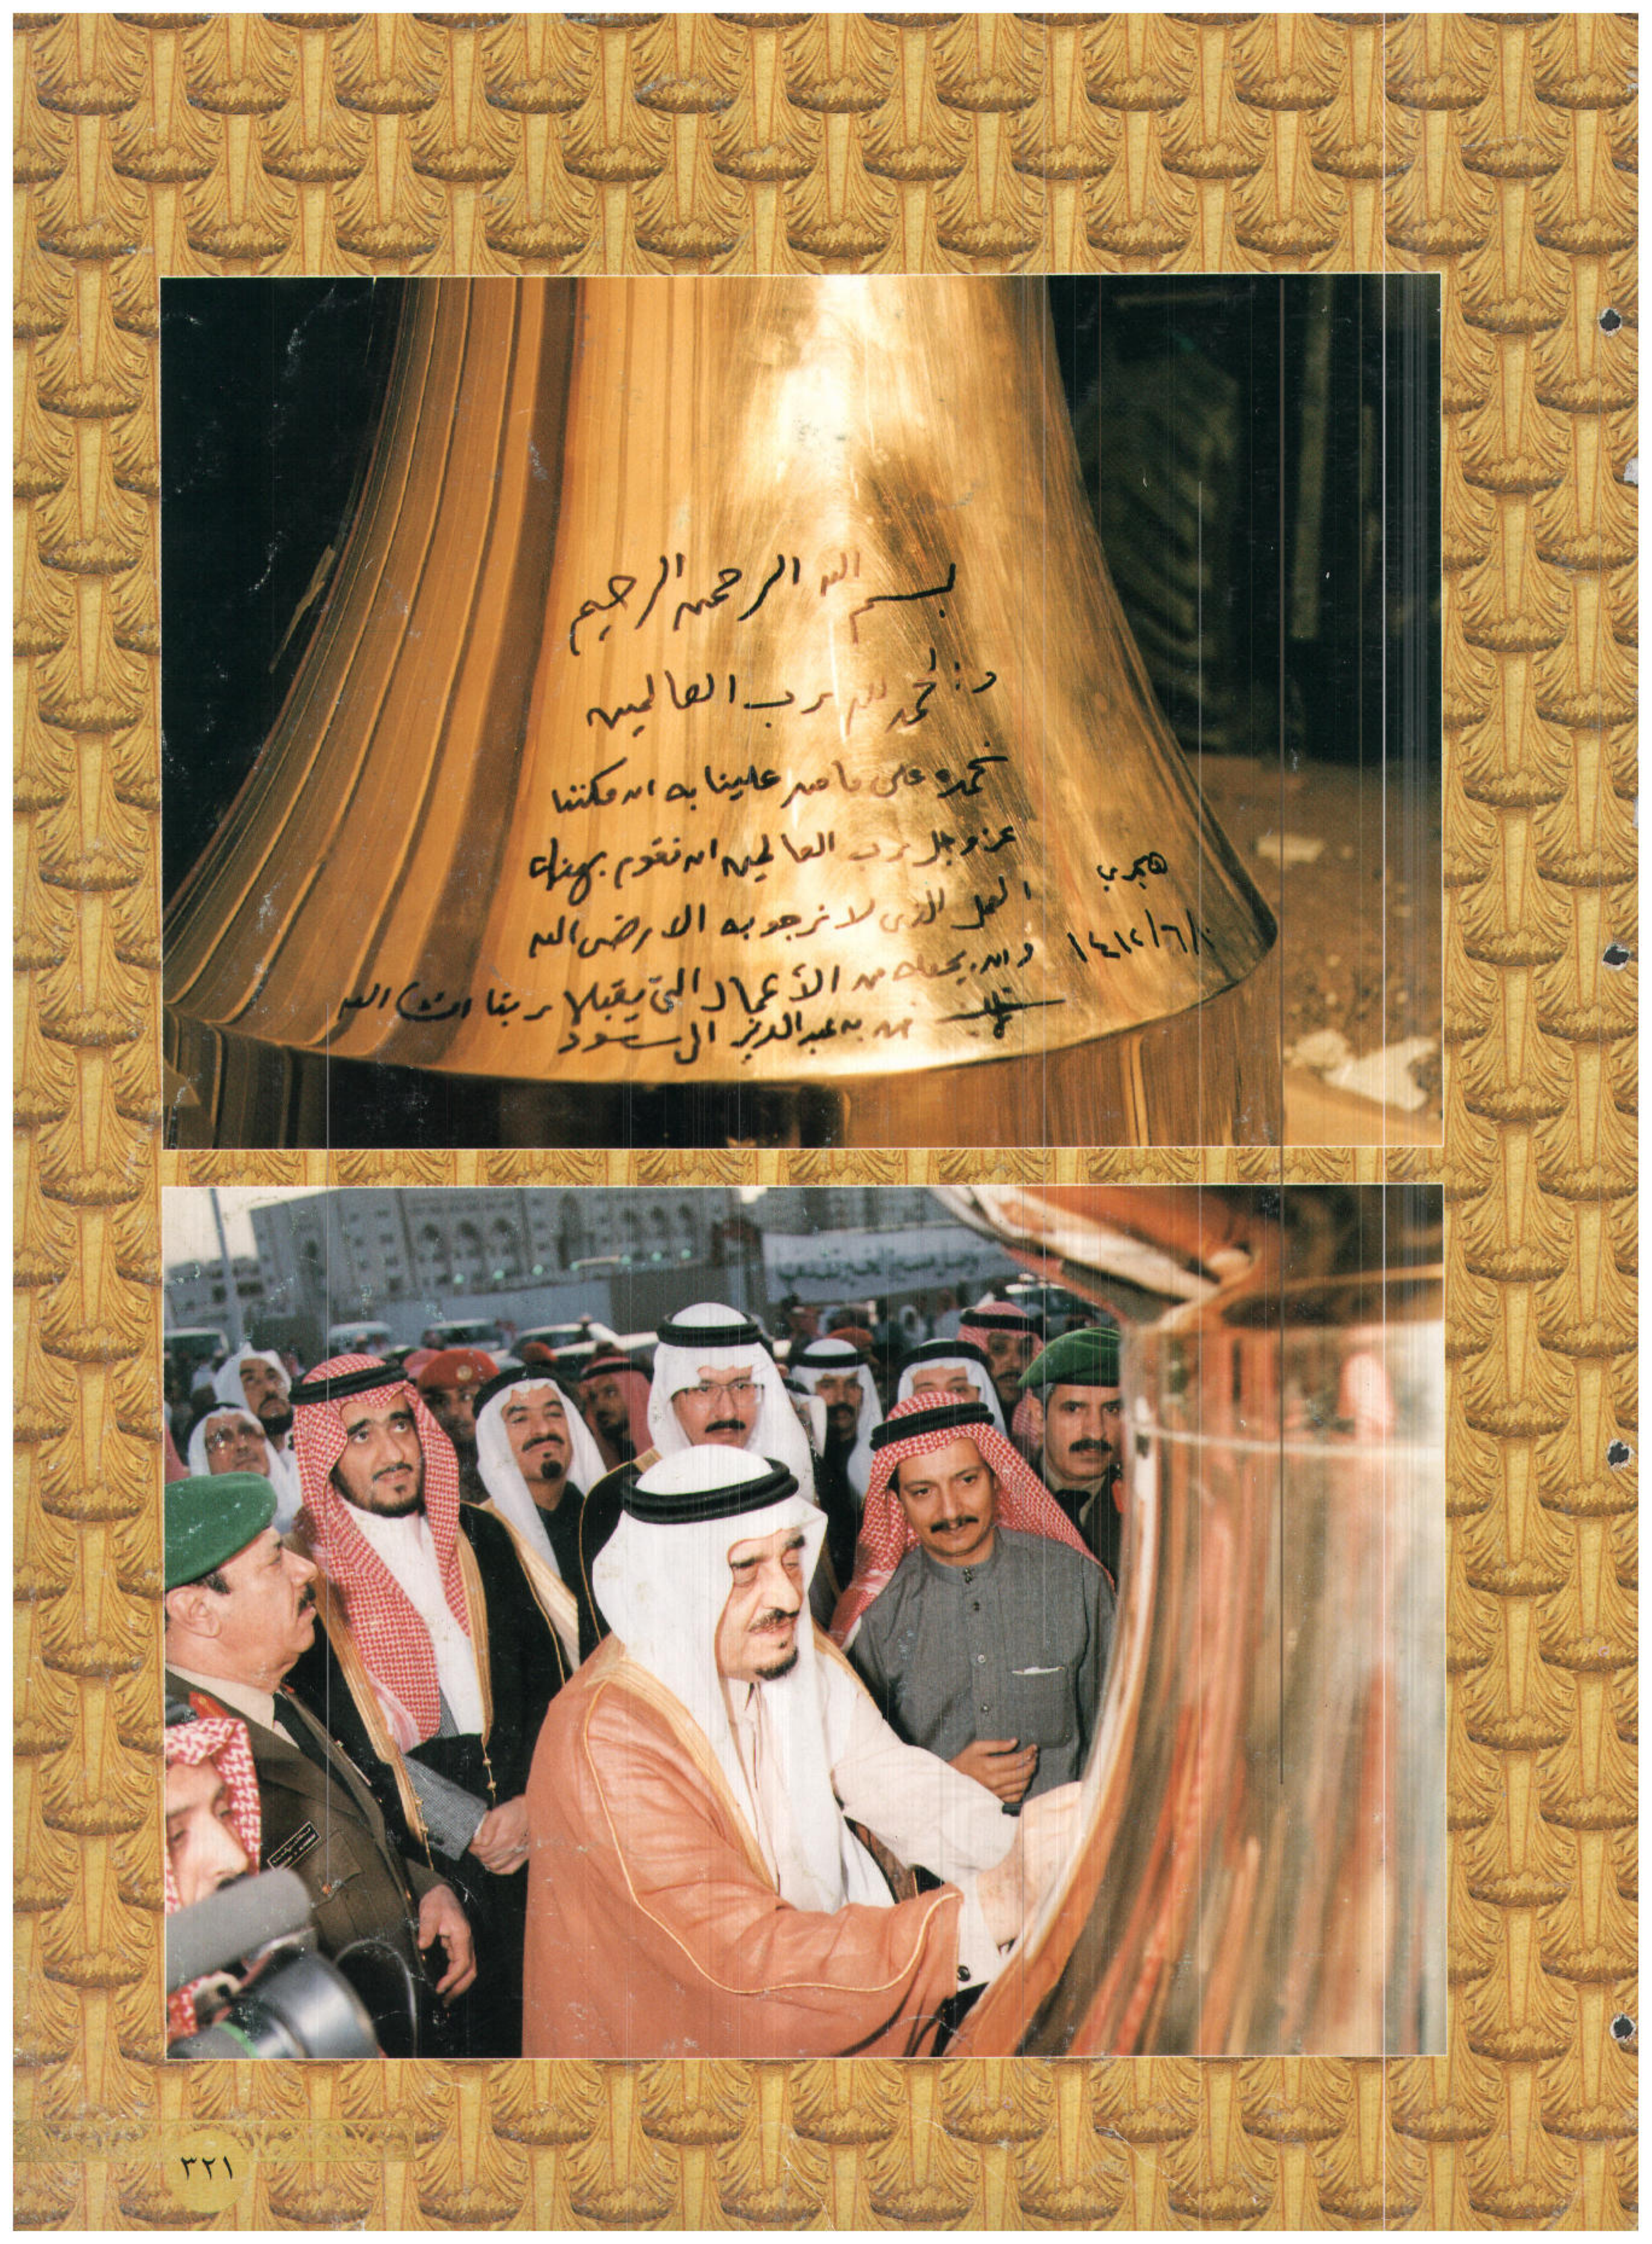 بسم الله الرحمن الرحيم
والحمد لله رب العالمين
نحمده على ما من علينا به ان مكننا
عز وجل رب العالمين ان نقوم بهذا
العمل الذي لا نرجو به الا رضى الله
وان يجعله من الأعمال التي يقبلها ربنا انشاء الله
فهد بن عبدالعزيز ال سعود
هجري
٣٢١